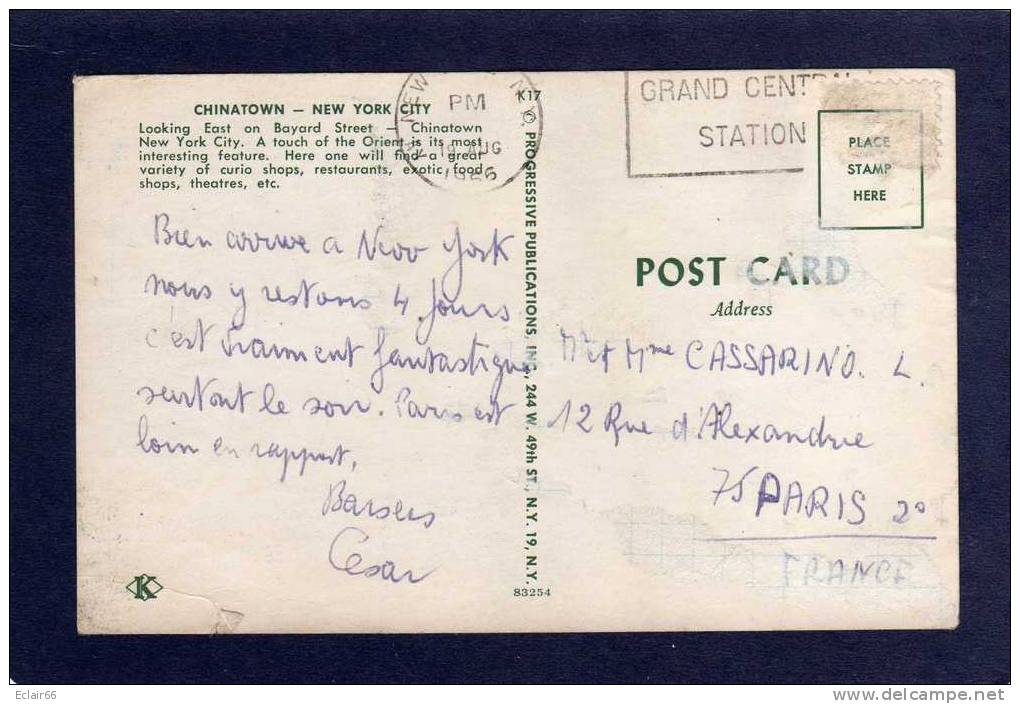 CHINATOWN — NEW YORK CITY
Looking East on Bayard Street — Chinatown
New York City. A touch of the Orient is its most
interesting feature. Here one will find a great
variety of curio shops, restaurants, exotic food
shops, theatres, etc.
Bien arrive a New York
nous y restons 4 jours.
c'est vraiment fantastique
surtout le soir. Paris est
loin en rapport,
Baisers
Cesar
K
83254
K17
© PROGRESSIVE PUBLICATIONS, INC., 244 W. 49th ST., N.Y. 19, N.Y.
NEW N.Y.
PM
19 AUG
GRAND CENTRAL
STATION
PLACE
STAMP
HERE
POST CARD
Address
Mr et Mme CASSARINO. L.
12 Rue d'Alexandrie
75 PARIS 2°
FRANCE
Eclair66
delcampe.net